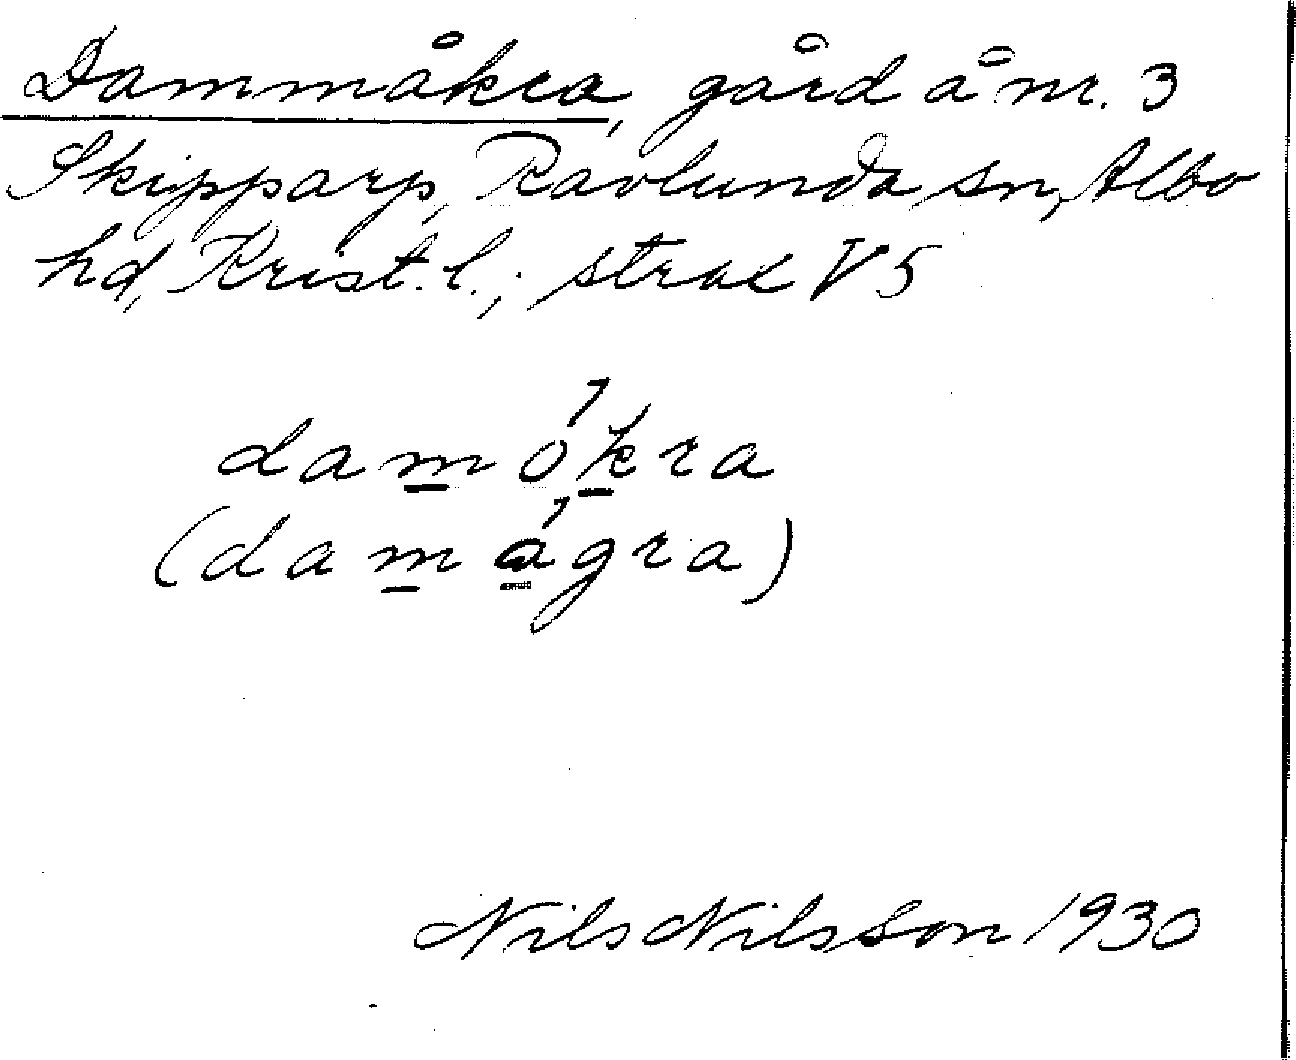 Dammåkra, gård å nr. 3
Skipparp, Ravlunda sn, Albo
hd, Krist. l.; strax V 5
damókra
(damågra)
Nils Nilsson 1930